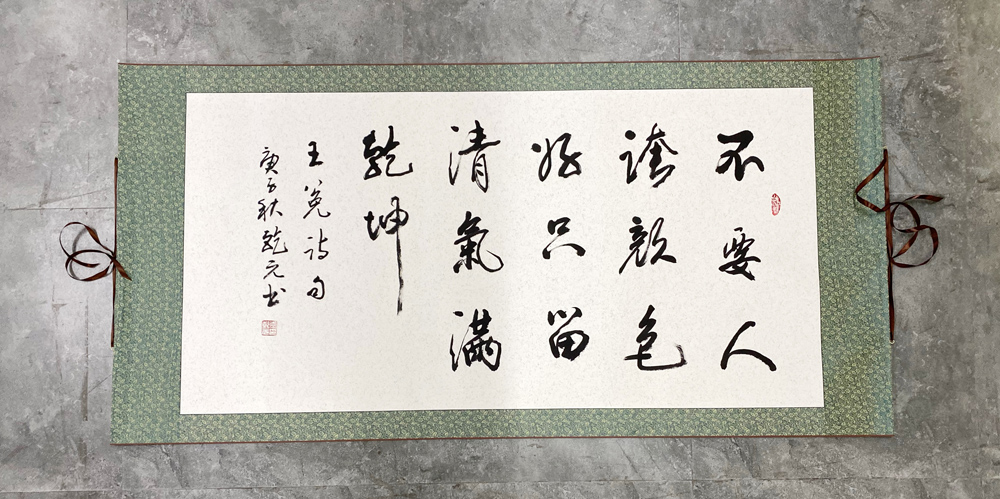 不要人
誇顏色
好只留
清氣滿
乾坤
王冕詩句
庚子秋乾元书